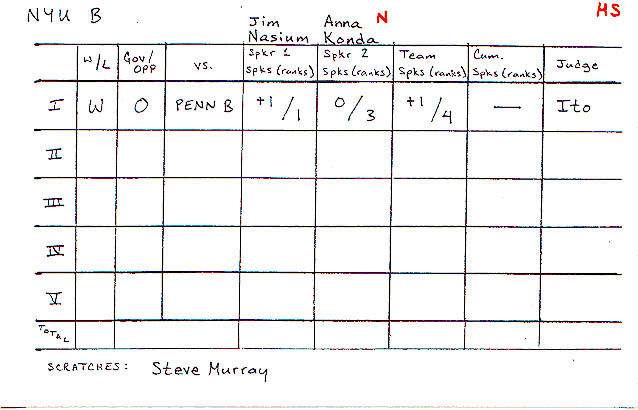 NYU B
Jim Nasium
Anna Konda
N
HS
W/L
Gov/OPP
vs.
Spkr 1 Spks (ranks)
Spkr 2 Spks (ranks)
Team Spks (ranks)
Cum. Spks (ranks)
Judge
I W O PENN B +1/1 0/3 +1/4 — Ito
II
III
IV
V
TOTAL
SCRATCHES: Steve Murray